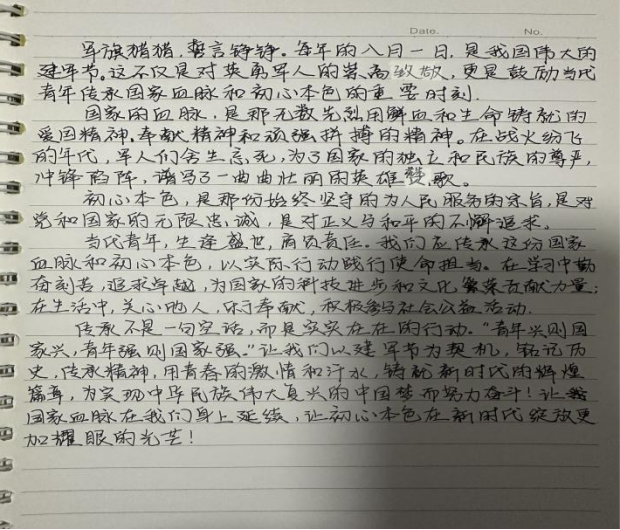 Date. No.
军旗猎猎,誓言铮铮。每年的八月一日,是我国伟大的
建军节。这不仅是对英勇军人的崇高致敬,更是鼓励当代
青年传承国家血脉和初心本色的重要时刻.
国家的血脉,是那无数先烈用鲜血和生命铸就的
爱国精神.奉献精神和顽强拼搏的精神。在战火纷飞
的年代,军人们舍生忘死,为了国家的独立和民族的尊严,
冲锋陷阵,谱写了一曲曲壮丽的英雄赞歌。
初心本色,是那份始终坚守的为人民服务的宗旨,是对
党和国家的无限忠诚,是对正义与和平的不懈追求。
当代青年,生逢盛世,肩负责任。我们应传承这份国家
血脉和初心本色,以实际行动践行使命担当。在学习中勤
奋刻苦,追求卓越,为国家的科技进步和文化繁荣贡献力量;
在生活中,关心他人,乐于奉献,积极参与社会公益活动.
传承不是一句空话,而是实实在在的行动。"青年兴则国
家兴,青年强则国家强。"让我们以建军节为契机,铭记历
史,传承精神,用青春的激情和汗水,铸就新时代的辉煌
篇章,为实现中华民族伟大复兴的中国梦而努力奋斗!让
国家血脉在我们身上延续,让初心本色在新时代绽放更
加耀眼的光芒!